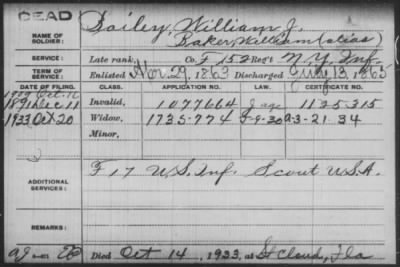 DEAD
NAME OF SOLDIER: Bailey, William J.
Baker, William (alias)
SERVICE: Late rank, Co. F 152 Reg't N.Y. Inf.
TERM OF SERVICE: Enlisted Nov. 29, 1863 Discharged July 13, 1865
DATE OF FILING. CLASS. APPLICATION NO. LAW. CERTIFICATE NO.
Oct. 16
1891 Dec 11 Invalid, 1077664 J 1125315
1933 Oct 20 Widow, 1735-774 A-3-21-34
Minor,
ADDITIONAL SERVICES: F 17 U.S. Inf. Scout U.S.A.
REMARKS:
Died Oct 14, 1933, at St Cloud, Fla